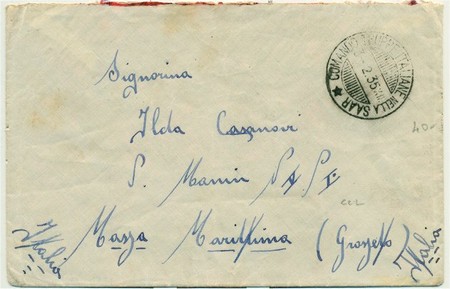 COMANDO TRUPPE ITALIANE NELLA SAAR
2.35
Signorina
Ilda Casanovi
40-
Massa Marittima (Grosseto)
Italia
Italia